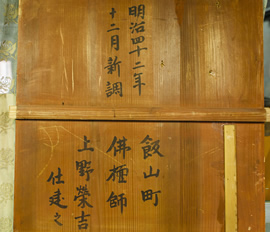 明治四十二年
十二月新調
飯山町
佛壇師
上野榮吉
仕建之